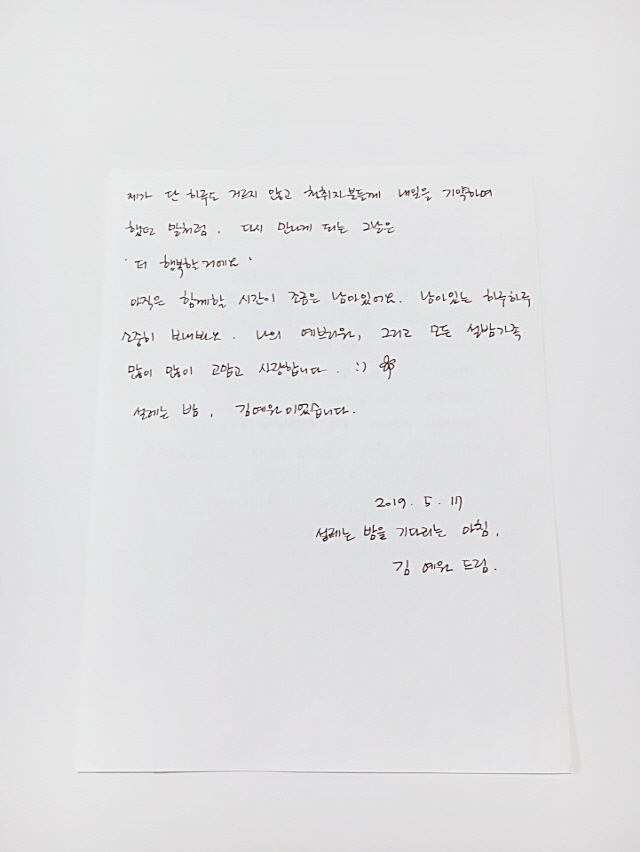 제가 단 하루도 거르지 않고 청취자분들께 내일을 기약하며
했던 말처럼. 다시 만나게 되는 그날은
'더 행복할거에요'
아직은 함께할 시간이 조금은 남아있어요. 남아있는 하루하루
소중히 보내봐요. 나의 예브리원, 그리고 모든 설밤가족
많이 많이 고맙고 사랑합니다. :)
설레는 밤, 김예원이었습니다.
2019. 5. 17
설레는 밤을 기다리는 아침,
김 예원 드림.